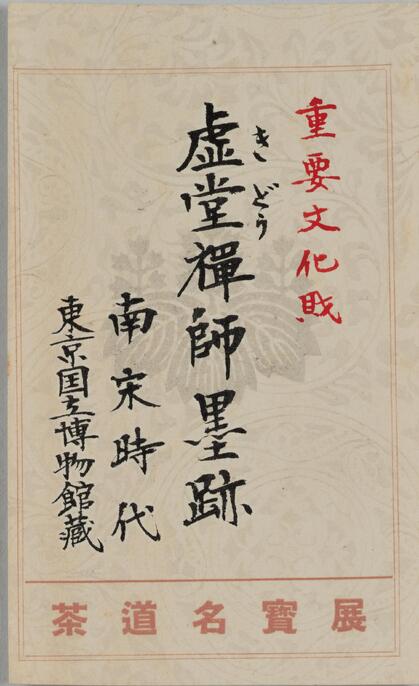 重要文化財
虚堂禪師墨跡
きどう
南宋時代
東京国立博物館藏
茶道名寶展